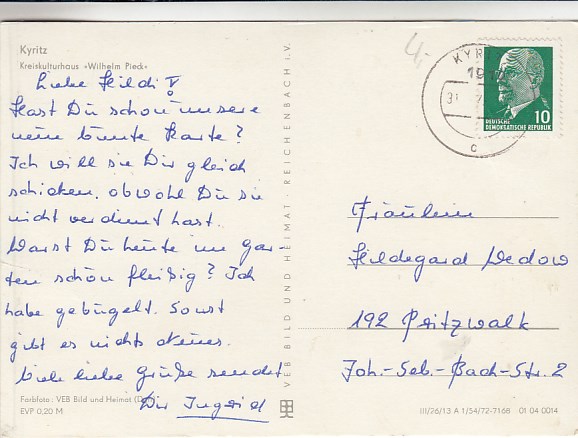 Kyritz
Kreiskulturhaus »Wilhelm Pieck«
Liebe Hildi!
Hast Du schon unsere
neue bunte Karte?
Ich will sie Dir gleich
schicken, obwohl Du sie
nicht verdient hast.
Warst Du heute im Gar-
ten schön fleißig? Ich
habe gebügelt. Sonst
gibt es nichts Neues.
Viele liebe Grüße sendet
Dir Ingrid
Farbfoto: VEB Bild und Heimat
EVP 0,20 M
VEB BILD UND HEIMAT REICHENBACH i. V.
4,-
KYR
191
31
c
10
DEUTSCHE
DEMOKRATISCHE REPUBLIK
Fräulein
Hildegard Wedow
192 Pritzwalk
Joh.-Seb.-Bach-Str. 2
III/26/13 A 1/54/72-7168 01 04 0014